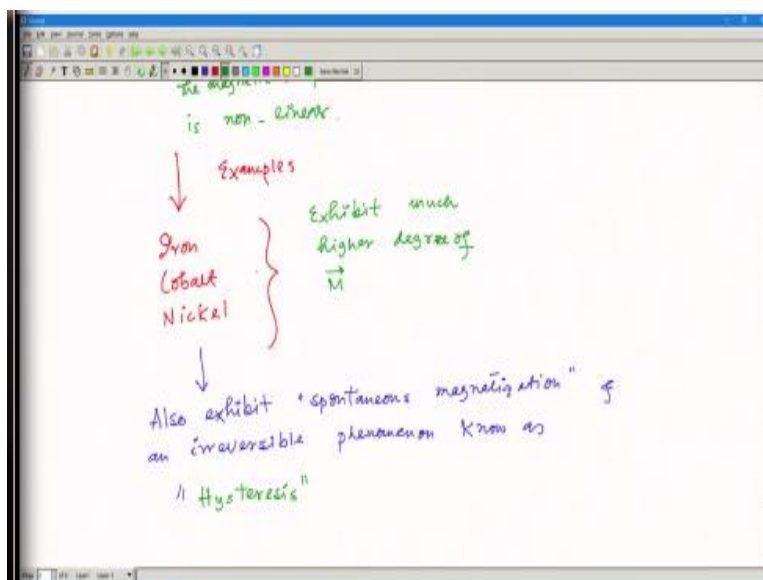 is non-linear.
Examples
Iron
Cobalt
Nickel
Exhibit much
higher degree of
M
Also exhibit "spontaneous magnetization" &
an irreversible phenomenon know as
"Hysteresis"